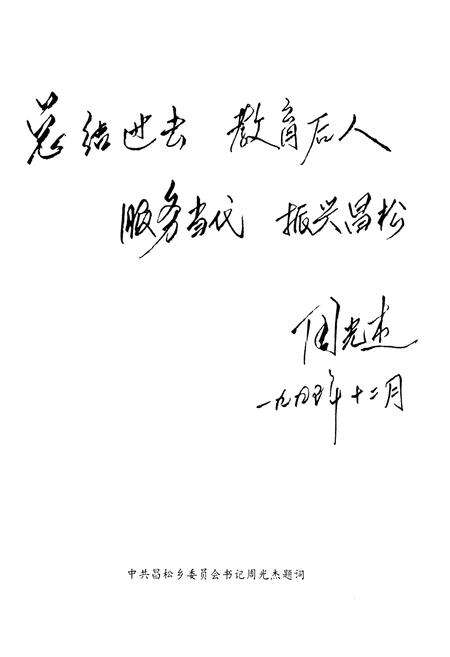 总结过去 教育后人
服务当代 振兴昌松
周光杰
一九九五年十二月
中共昌松乡委员会书记周光杰题词